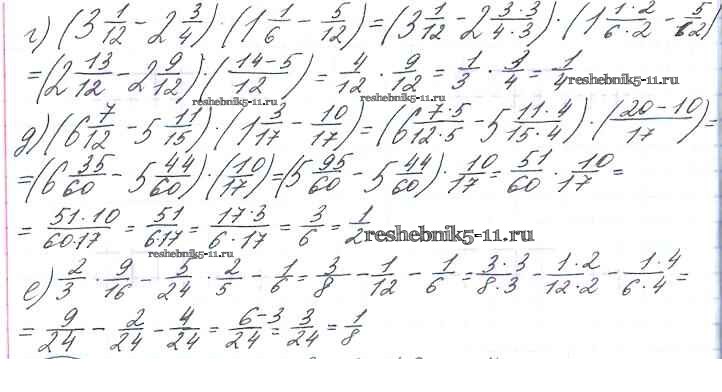 г) (3 1/12 - 2 3/4) · (1 1/6 - 5/12) = (3 1/12 - 2 3·3/4·3) · (1 1·2/6·2 - 5/12)
= (2 13/12 - 2 9/12) · (14-5/12) = 4/12 · 9/12 = 1/3 · 3/4 = 1/4 reshebnik5-11.ru
reshebnik5-11.ru reshebnik5-11.ru
д) (6 7/12 - 5 11/15) · (1 3/17 - 10/17) = (6 7·5/12·5 - 5 11·4/15·4) · (20-10/17) =
= (6 35/60 - 5 44/60) · (10/17) = (5 95/60 - 5 44/60) · 10/17 = 51/60 · 10/17 =
= 51·10/60·17 = 51/6·17 = 17·3/6·17 = 3/6 = 1/2 reshebnik5-11.ru
reshebnik5-11.ru reshebnik5-11.ru
е) 2/3 · 9/16 - 5/24 · 2/5 - 1/6 = 3/8 - 1/12 - 1/6 = 3·3/8·3 - 1·2/12·2 - 1·4/6·4 =
= 9/24 - 2/24 - 4/24 = 6-3/24 = 3/24 = 1/8